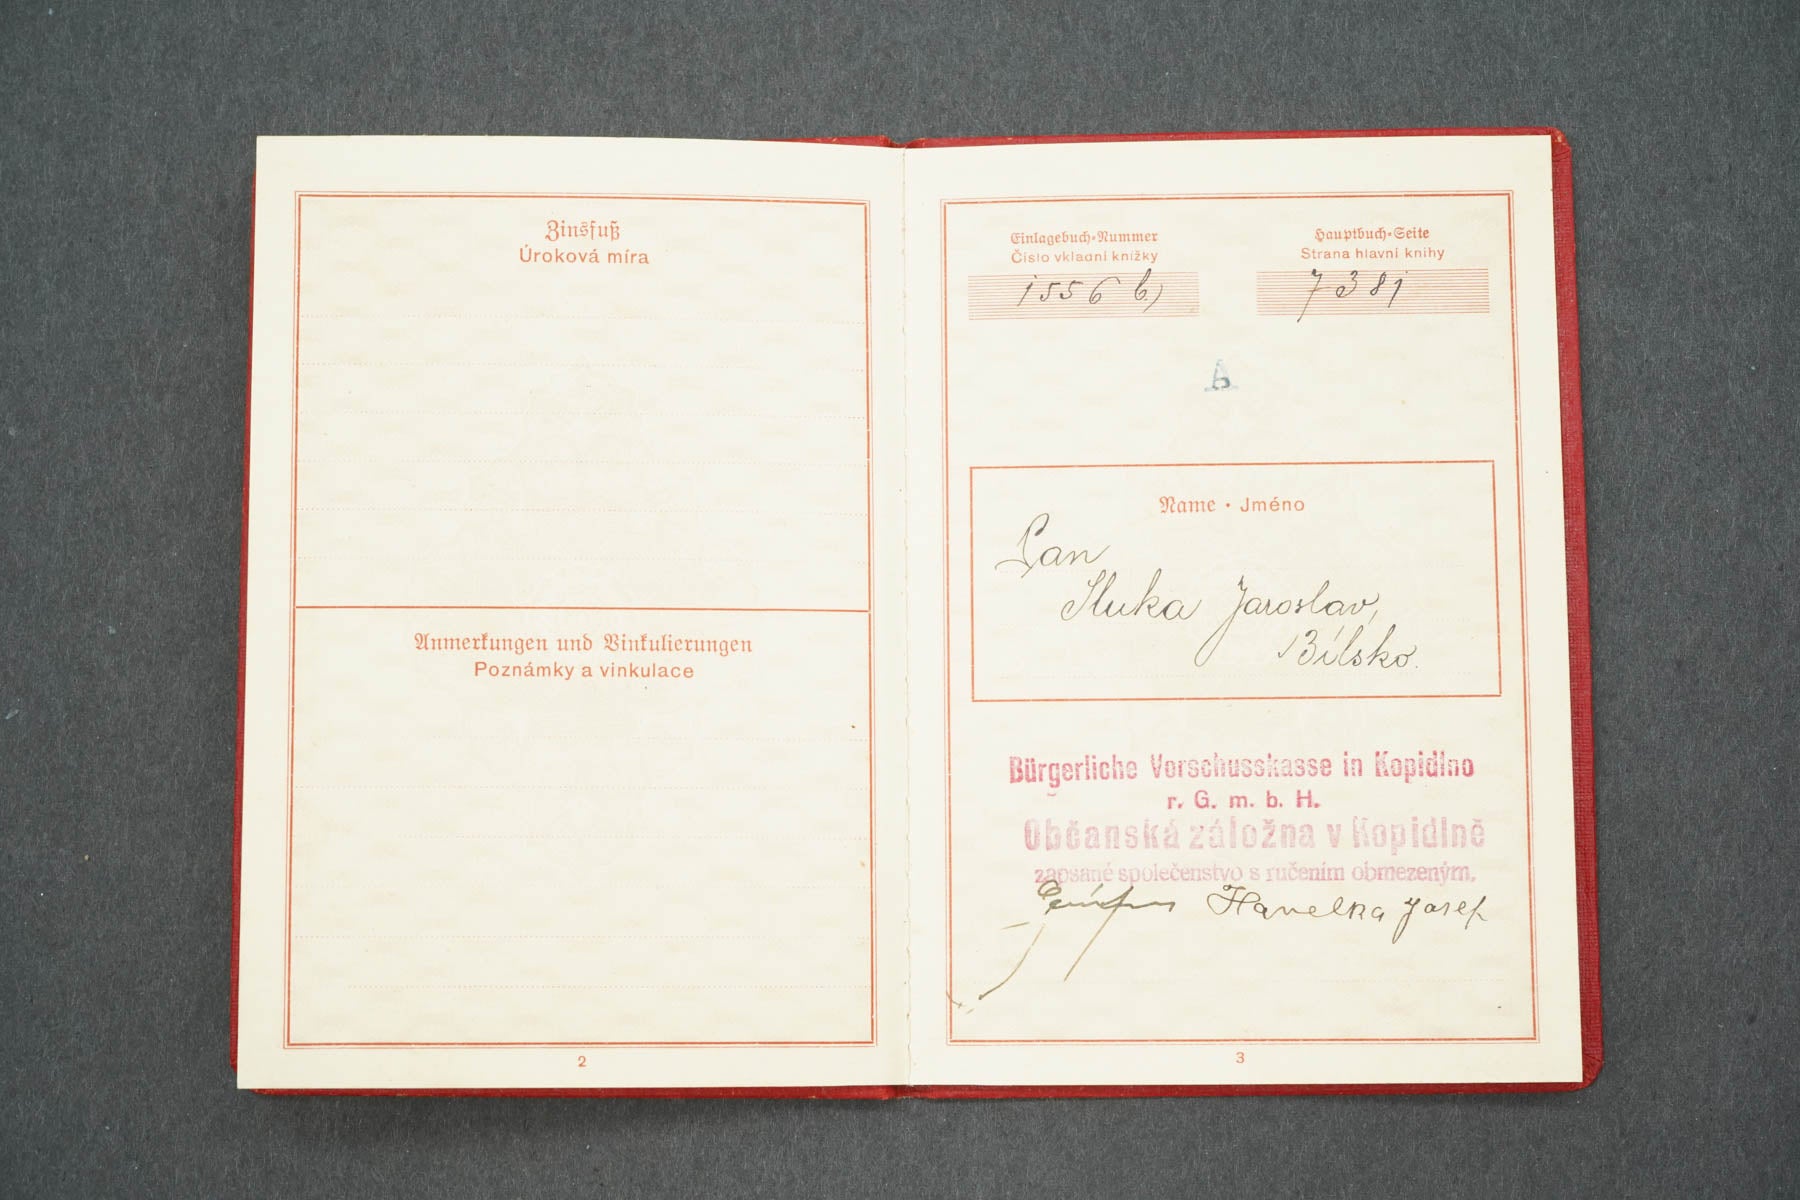 Zinsfuß
Úroková míra
Anmerkungen und Vinkulierungen
Poznámky a vinkulace
2
Einlagebuch-Nummer
Číslo vkladní knížky
1556 b)
Hauptbuch-Seite
Strana hlavní knihy
7381
A
Name • Jméno
Pan
Sluka Jaroslav,
Bílsko.
Bürgerliche Vorschusskasse in Kopidlno
r. G. m. b. H.
Občanská záložna v Kopidlně
zapsané společenstvo s ručením obmezeným.
Havelka Josef
3